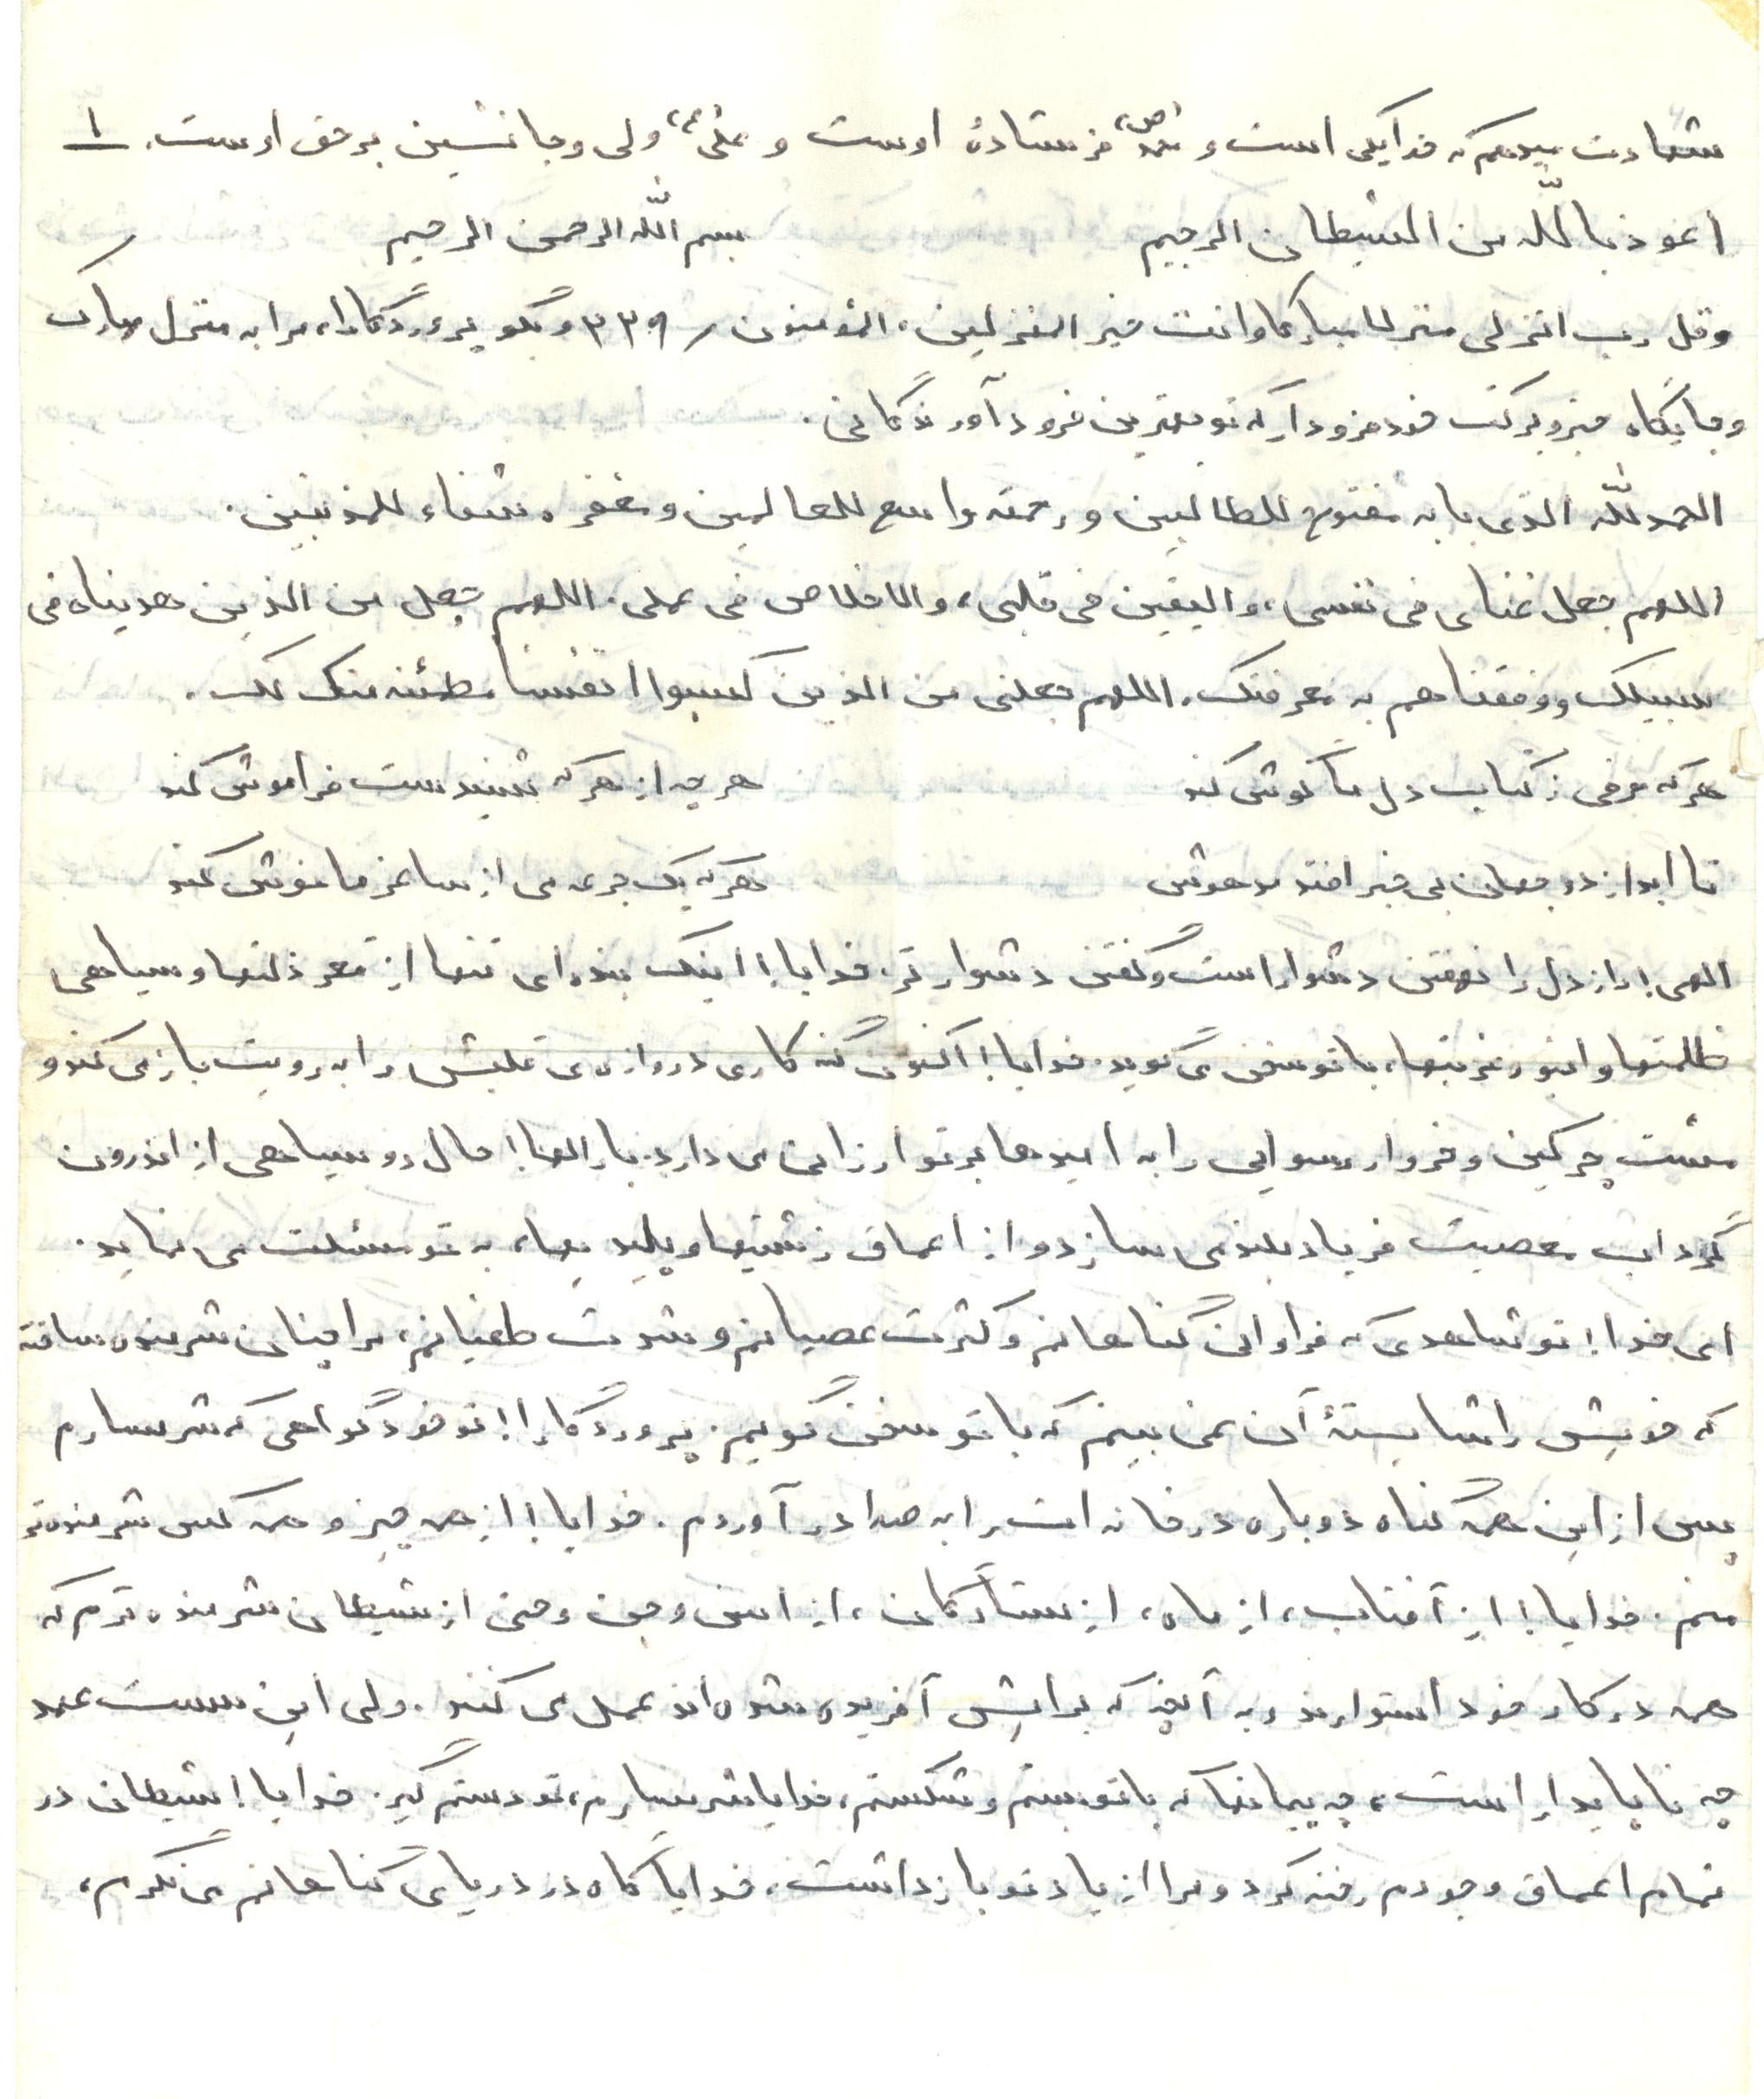 شهادت میدهم که خدا یکی است و محمد (ص) فرستادهٔ اوست و علی (ع) ولی و جانشین برحق اوست. ۱
اعوذ بالله من الشیطان الرجیم بسم الله الرحمن الرحیم
وقل رب انزلنی منزلا مبارکا وانت خیر المنزلین، المؤمنون / ۲۹ و بگو پروردگارا، مرا به منزل مبارک
و جایگاه خیر و برکت خود فرود آر که تو بهترین فرود آورندگانی.
الحمد لله الذی بابه مفتوح للطالبین و رحمته واسع للعالمین و مغفره شفاء للمذنبین.
اللهم جعل غنای فی نفسی، والیقین فی قلبی، والاخلاص فی عملی. اللهم جعل من الذین هدیناه فی
سبیلک ووفقناهم به معرفتک. اللهم جعلنی من الذین کسبوا انفسنا مطمئنه منک لک.
هر که حرفی ز کتاب دل ما گوش کند هر چه از هر که شنیدست فراموش کند
تا ابد از دو جهان بی خبر افتد مدهوش هر که یک جرعه می از ساغر ما نوش کند
الهی! راز دل را نهفتن دشوار است و گفتن دشوارتر. خدایا! اینک بنده ای تنها از قعر ذلتها و سیاهی
ظلمتها و انبوه غربتها، با تو سخن می گوید. خدایا! اکنون گنه کاری دروازه ی قلبش را به رویت باز می کند و
مشت چرکین و خروار رسوایی را به امیدها بر تو ارزانی می دارد. بارالها! حال روسیاهی از اندرون
گرداب معصیت فریاد بلند می سازد و از اعماق زشتیها و پلیدیها، به تو مسئلت می نماید.
ای خدا! تو شاهدی که فراوانی گناهانم و کثرت عصیانم و شدت طغیانم، مرا چنان شرمنده ساخته
که خویش را شایستهٔ آن نمی بینم که با تو سخن گویم. پروردگارا! تو خود گواهی که شرمسارم
پس از این همه گناه دوباره در خانه ات را به صدا در آوردم. خدایا! از همه چیز و همه کس شرمنده تر
منم. خدایا! از آفتاب، از ماه، از ستارگان، از انس و جن و حتی از شیطان شرمنده ترم که
همه در کار خود استوارند و به آنچه که برایش آفریده شده اند عمل می کنند. ولی این سست عهد
چه ناپایدار است، چه پیمانها که با تو بستم و شکستم، خدایا شرمسارم، تو دستم گیر. خدایا! شیطان در
تمام اعماق وجودم رخنه کرد و مرا از یاد تو باز داشت، خدایا گاه در دریای گناهانم می نگرم،